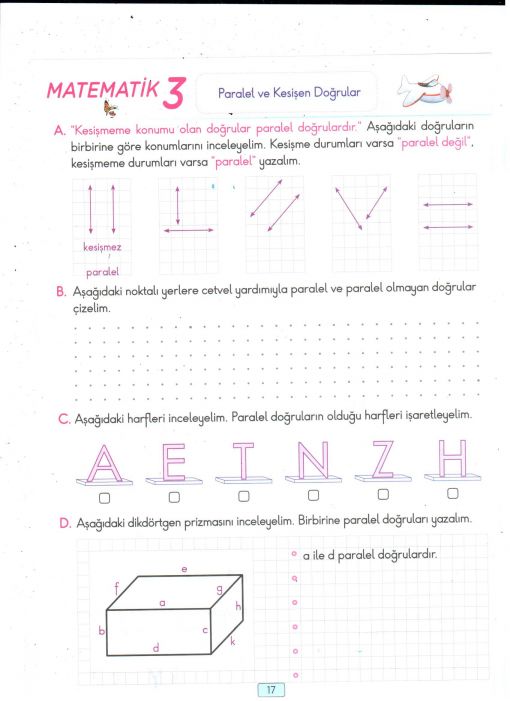 MATEMATİK 3
Paralel ve Kesişen Doğrular
A. "Kesişmeme konumu olan doğrular paralel doğrulardır." Aşağıdaki doğruların
birbirine göre konumlarını inceleyelim. Kesişme durumları varsa "paralel değil",
kesişmeme durumları varsa "paralel" yazalım.
kesişmez
paralel
B. Aşağıdaki noktalı yerlere cetvel yardımıyla paralel ve paralel olmayan doğrular
çizelim.
C. Aşağıdaki harfleri inceleyelim. Paralel doğruların olduğu harfleri işaretleyelim.
A E T N Z H
D. Aşağıdaki dikdörtgen prizmasını inceleyelim. Birbirine paralel doğruları yazalım.
a ile d paralel doğrulardır.
e
f
g
a
h
b
c
k
d
17